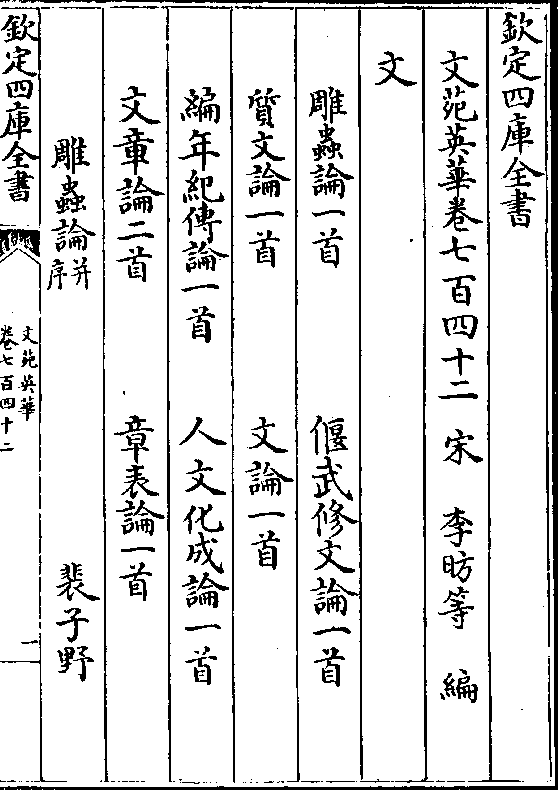 欽定四庫全書
文苑英華卷七百四十二 宋 李昉等 編
文
雕蟲論一首 偃武修文論一首
質文論一首 文論一首
編年紀傳論一首 人文化成論一首
文章論二首 章表論一首
雕蟲論并序 裴子野
欽定四庫全書
文苑英華
卷七百四十二
一